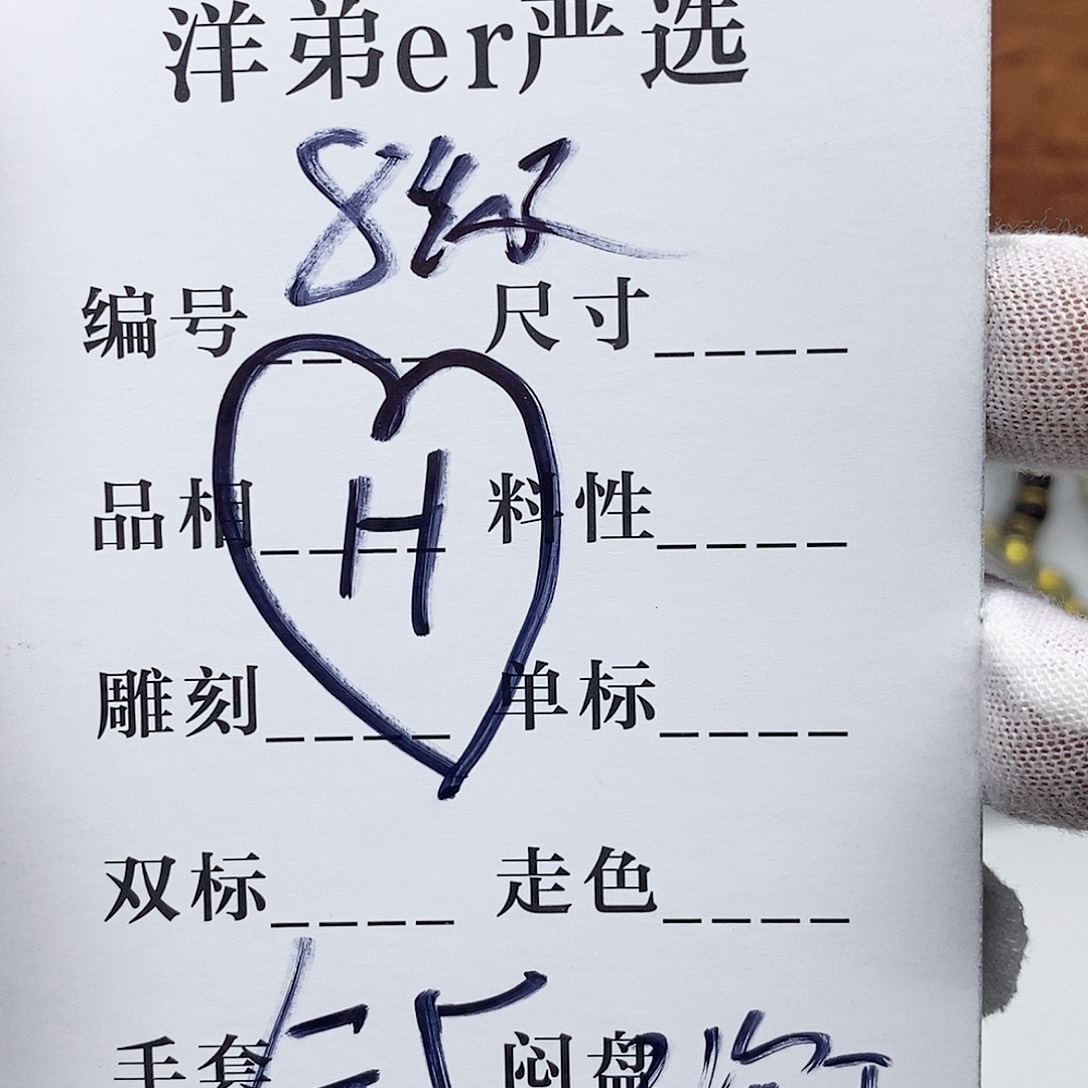 洋弟er严选
8
编号____ 尺寸____
H
品相____ 料性____
雕刻____ 单标____
双标____ 走色____
手套 闷盘